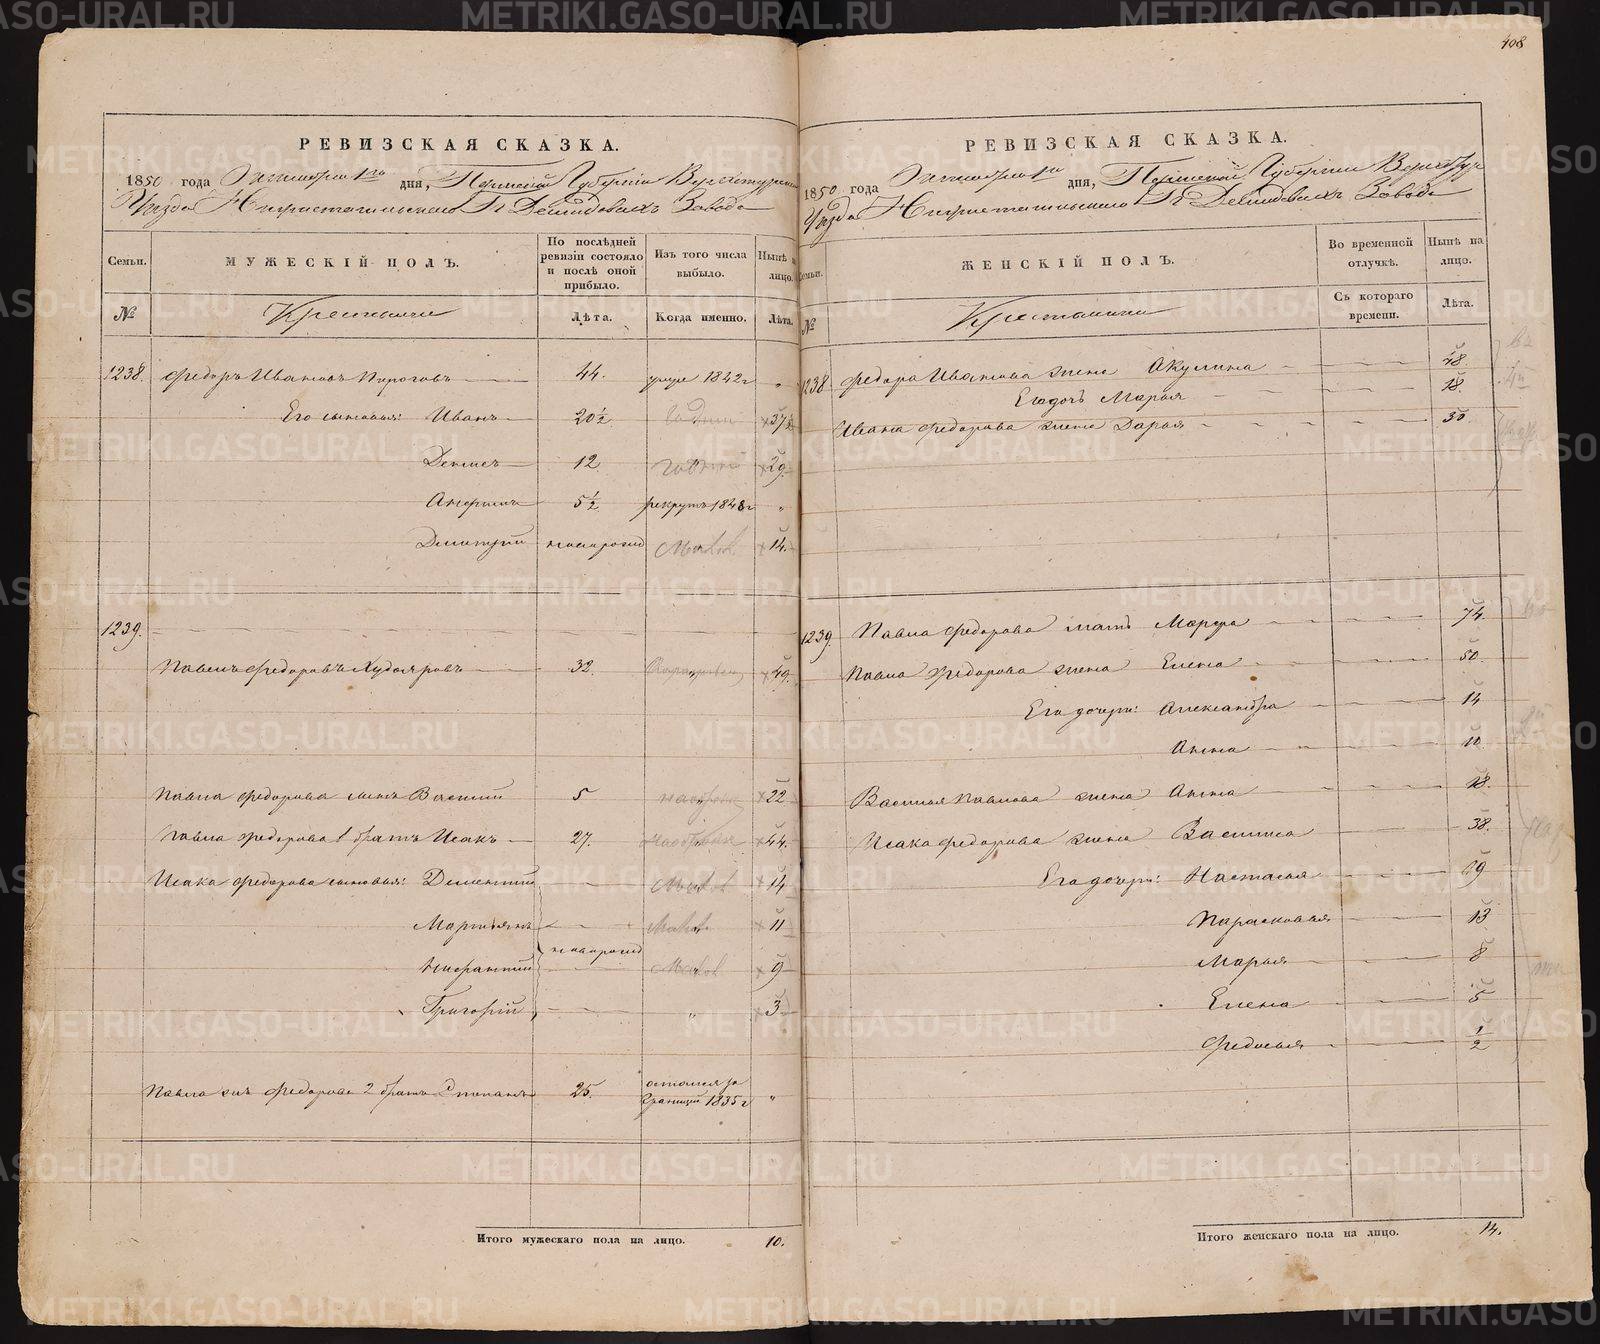 408
РЕВИЗСКАЯ СКАЗКА.
1850 года дня, Пермской Губернии Верхотурскаго
Уѣзда Нижнетагильскаго Гг Демидовыхъ Завода
Семьи.
МУЖЕСКІЙ ПОЛЪ.
По послѣдней ревизіи состояло и послѣ оной прибыло.
Изъ того числа выбыло.
Нынѣ на лицо.
№
Крестьяне
Лѣта.
Когда именно.
Лѣта.
1238. Федоръ Ивановъ Пороговъ 44. умре 1842 г "
Его сыновья: Иванъ 20½ 37½
Денисъ 12 годный 29
5½ рекрутъ 184 г "
Дмитрій новорожд 14.
1239.
Павелъ Федоровъ Худояровъ 32. 49.
Павла Федорова сынъ Василій 5 22
Павла Федорова 1 братъ Исакъ 27. 44.
Исака Федорова сыновья: Дементій 14
Мартьянъ 11
новорожд
9
Григорій 3
Павла же Федорова 2 братъ Степанъ 25. остался за
границей 1835 г "
Итого мужескаго пола на лицо. 10.
РЕВИЗСКАЯ СКАЗКА.
1850 года дня, Пермской Губернии Верхотур
Уѣзда Нижнетагильскаго Гг Демидовыхъ Завода
Семьи.
ЖЕНСКІЙ ПОЛЪ.
Во временной отлучкѣ.
Нынѣ на лицо.
№
Крестьянки
Съ котораго времени.
Лѣта.
1238 Федора Иванова жена Акулина 48
Его дочь Марья 18.
Ивана Федорова жена Дарья 30
1239. Павла Федорова мать Марфа 74.
Павла Федорова жена Елена 50.
Его дочери: Александра 14
Анна 10.
Василья Павлова жена Анна 18.
Исака Федорова жена Василиса 38.
Его дочери: Настасья 19
Парасковья 13
Марья 8
Елена 5
Федосья ½
Итого женскаго пола на лицо. 14.
METRIKI.GASO-URAL.RU